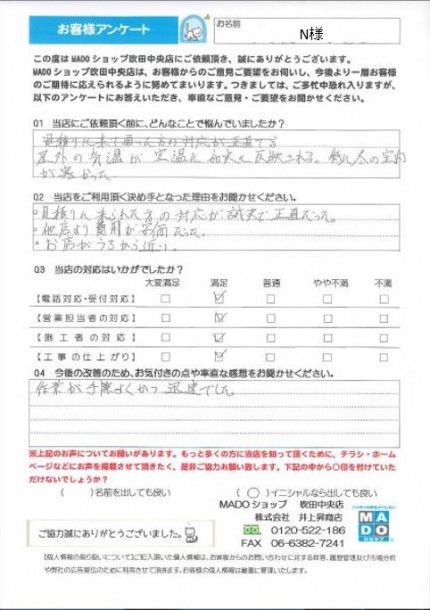 お客様アンケート
お名前
N様
この度は MADOショップ吹田中央店にご依頼頂き、誠にありがとうございます。
MADOショップ吹田中央店は、お客様からのご意見ご要望をお伺いし、今後より一層お客様
のご期待に応えられるように努めてまいります。つきましては、ご多忙中恐れ入りますが、
以下のアンケートにお答えいただき、率直なご意見・ご要望をお聞かせください。
Q1 当店にご依頼頂く前に、どんなことで悩んでいましたか?
屋外の気温が室温に 反映される。 冬の室内
が寒かった
Q2 当店をご利用頂く決め手となった理由をお聞かせください。
・見積りに来られた方の対応が誠実で正直だった。
・他店より費用が安価だった。
・お店がうちから近い。
Q3 当店の対応はいかがでしたか?
大変満足 満足 普通 やや不満 不満
【電話対応・受付対応】 □ ☑ □ □ □
【営業担当者の対応】 □ ☑ □ □ □
【施工者の対応】 □ ☑ □ □ □
【工事の仕上がり】 □ ☑ □ □ □
Q4 今後の改善のため、お気付きの点や率直な感想をお聞かせください。
作業が手際よくかつ迅速でした。
※上記のお声についてお願いがあります。もっと多くの方に当店を知って頂くために、チラシ・ホーム
ページなどにお声を掲載させて頂きたく、是非ご協力お願い致します。下記の中から〇印を付けていた
だけないでしょうか?
( )名前を出しても良い (〇)イニシャルなら出しても良い
MADOショップ 吹田中央店
株式会社 井上昇商店
0120-522-186
FAX 06-6382-7241
MADO
ショップ
ご協力誠にありがとうございました。
【個人情報の取り扱いについて】ご記入頂いた個人情報は、お客様からのお問い合わせに対する回答、履歴管理及び市場分析
や弊社の広告宣伝のために利用させて頂きます。お客様の個人情報は厳重に管理いたします。